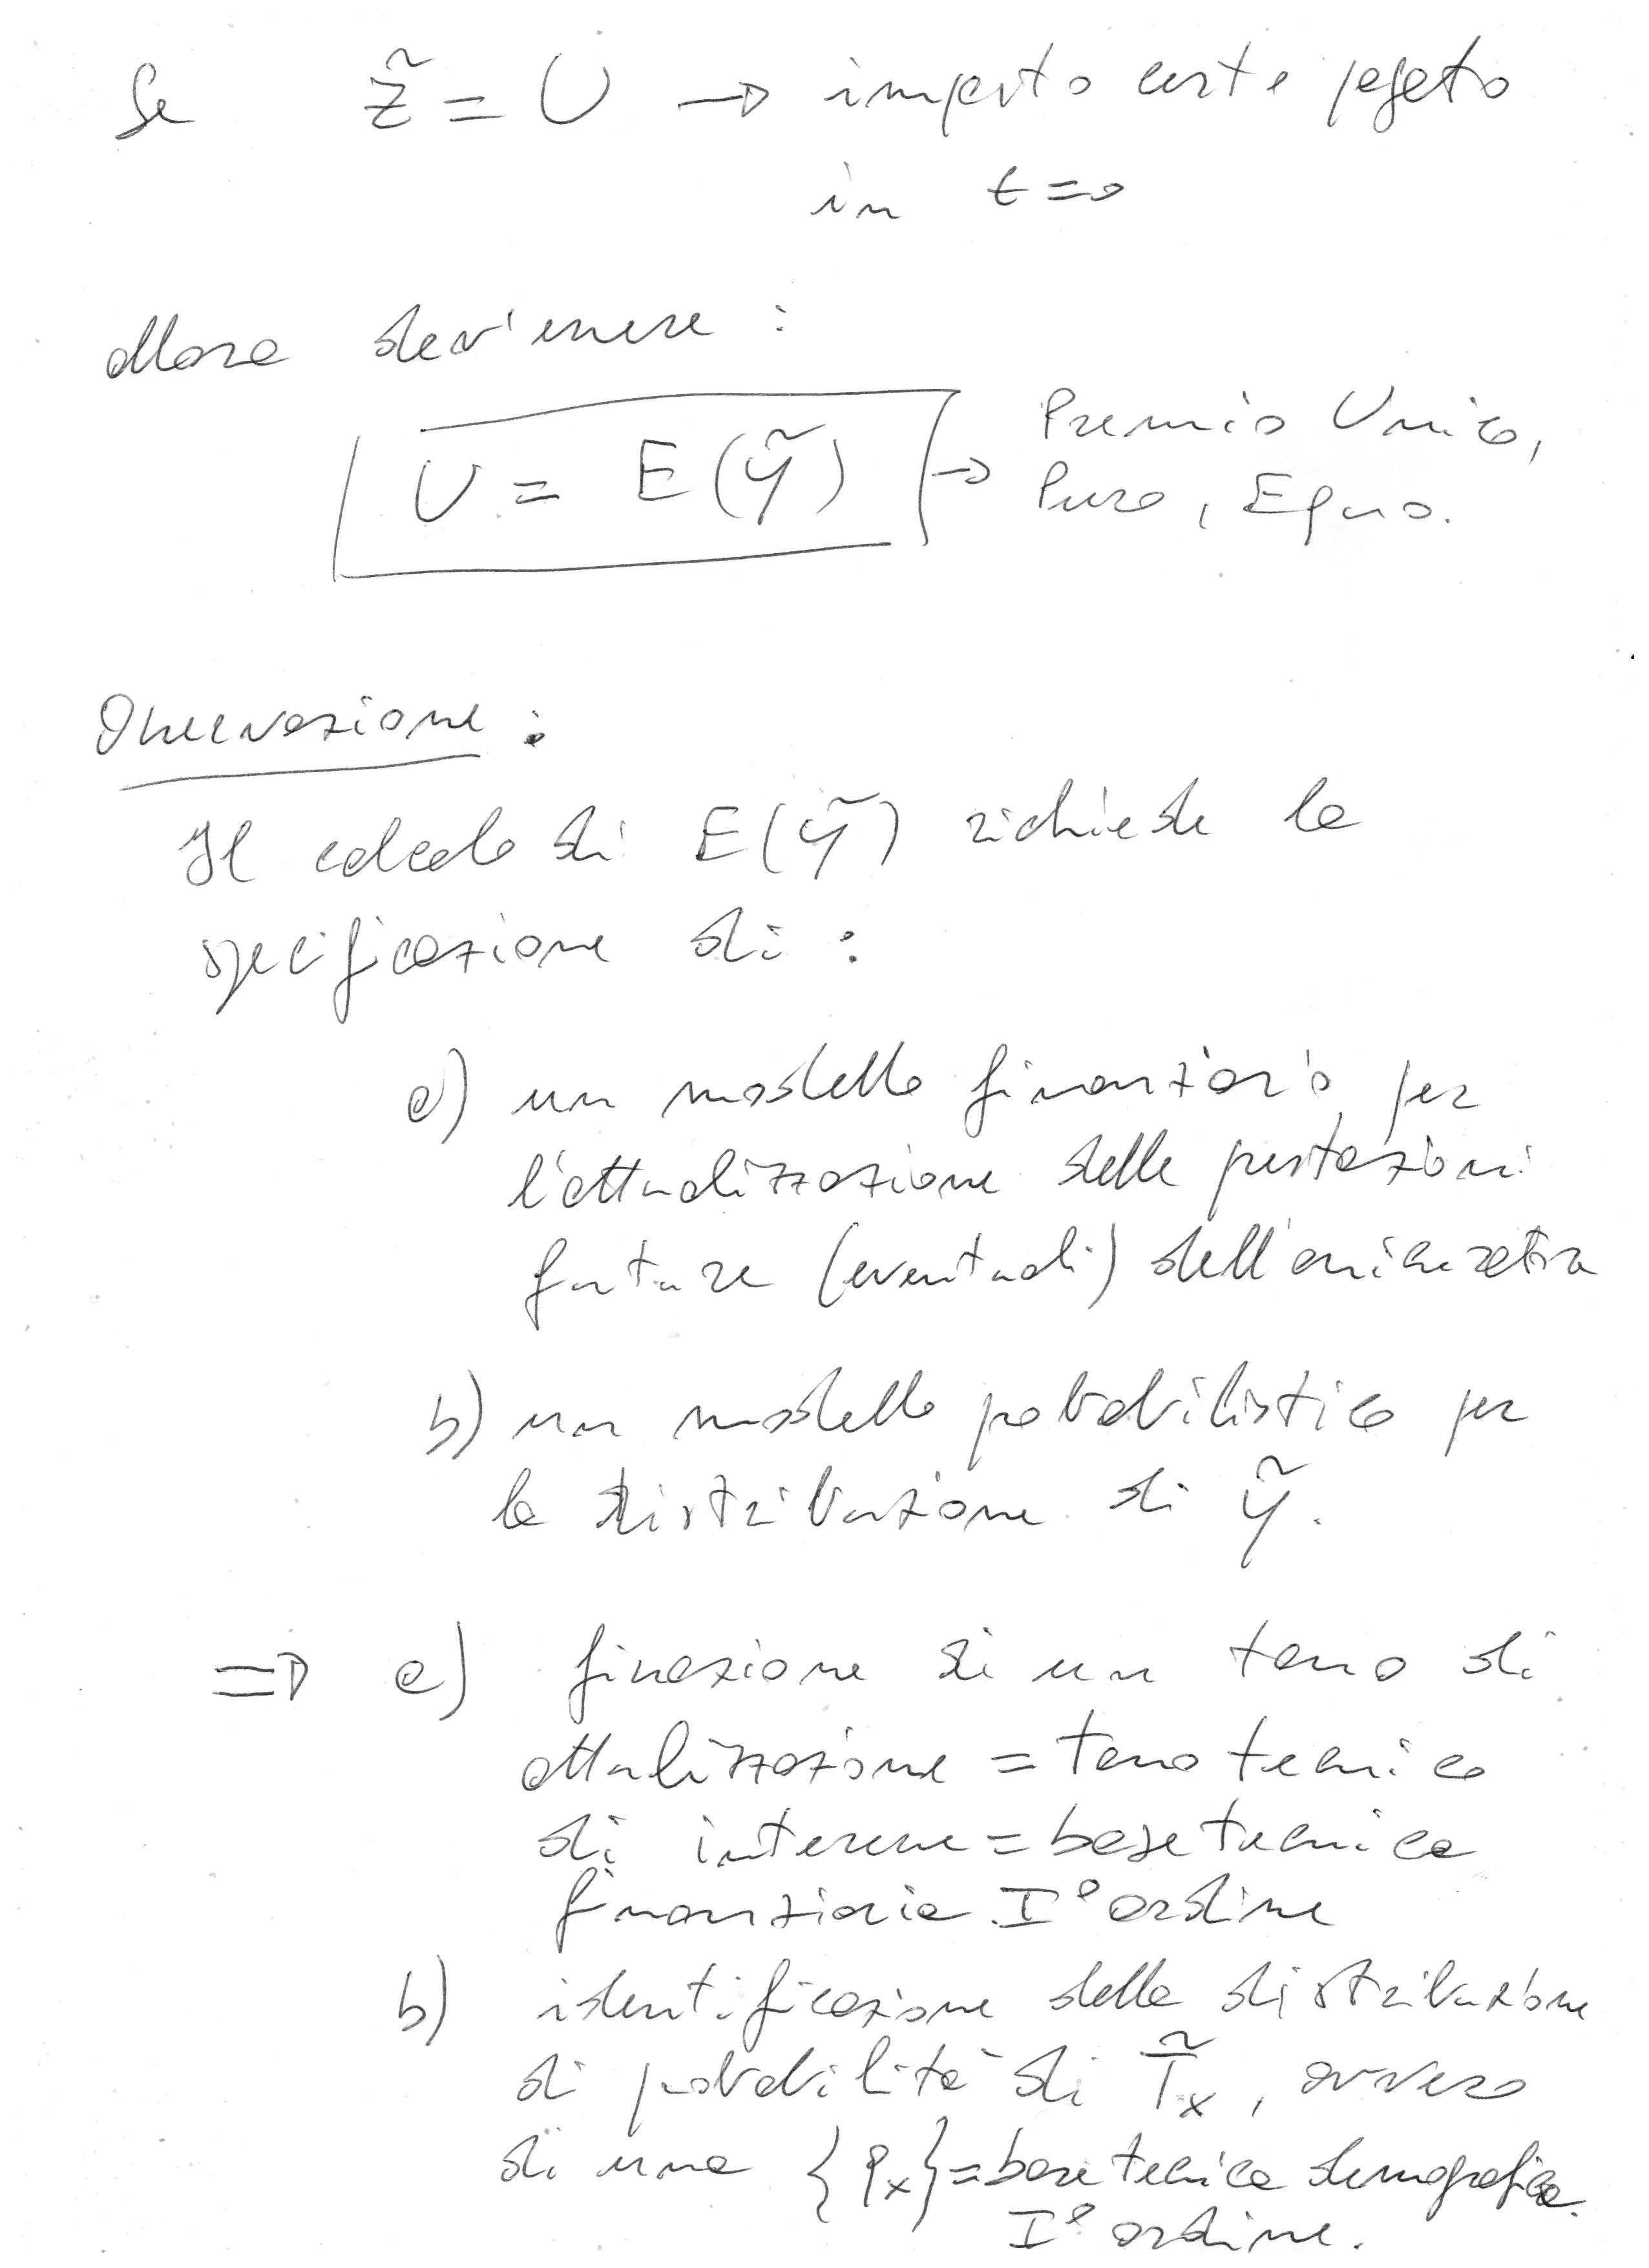 Se Z̃ = U → importo certo pagato
in t=0
allora dev'essere :
U = E(Ỹ) → Premio Unico,
Puro, Equo.
Osservazione :
Il calcolo di E(Ỹ) richiede la
specificazione di :
a) un modello finanziario per
l'attualizzazione delle prestazioni
future (eventuali) dell'assicuratore
b) un modello probabilistico per
la distribuzione di Ỹ.
⇒ a) fissazione di un tasso di
attualizzazione = tasso tecnico
di interesse = base tecnica
finanziaria I° ordine
b) identificazione della distribuzione
di probabilità di T̃x, ovvero
di una {qx} = base tecnica demografica
I° ordine.